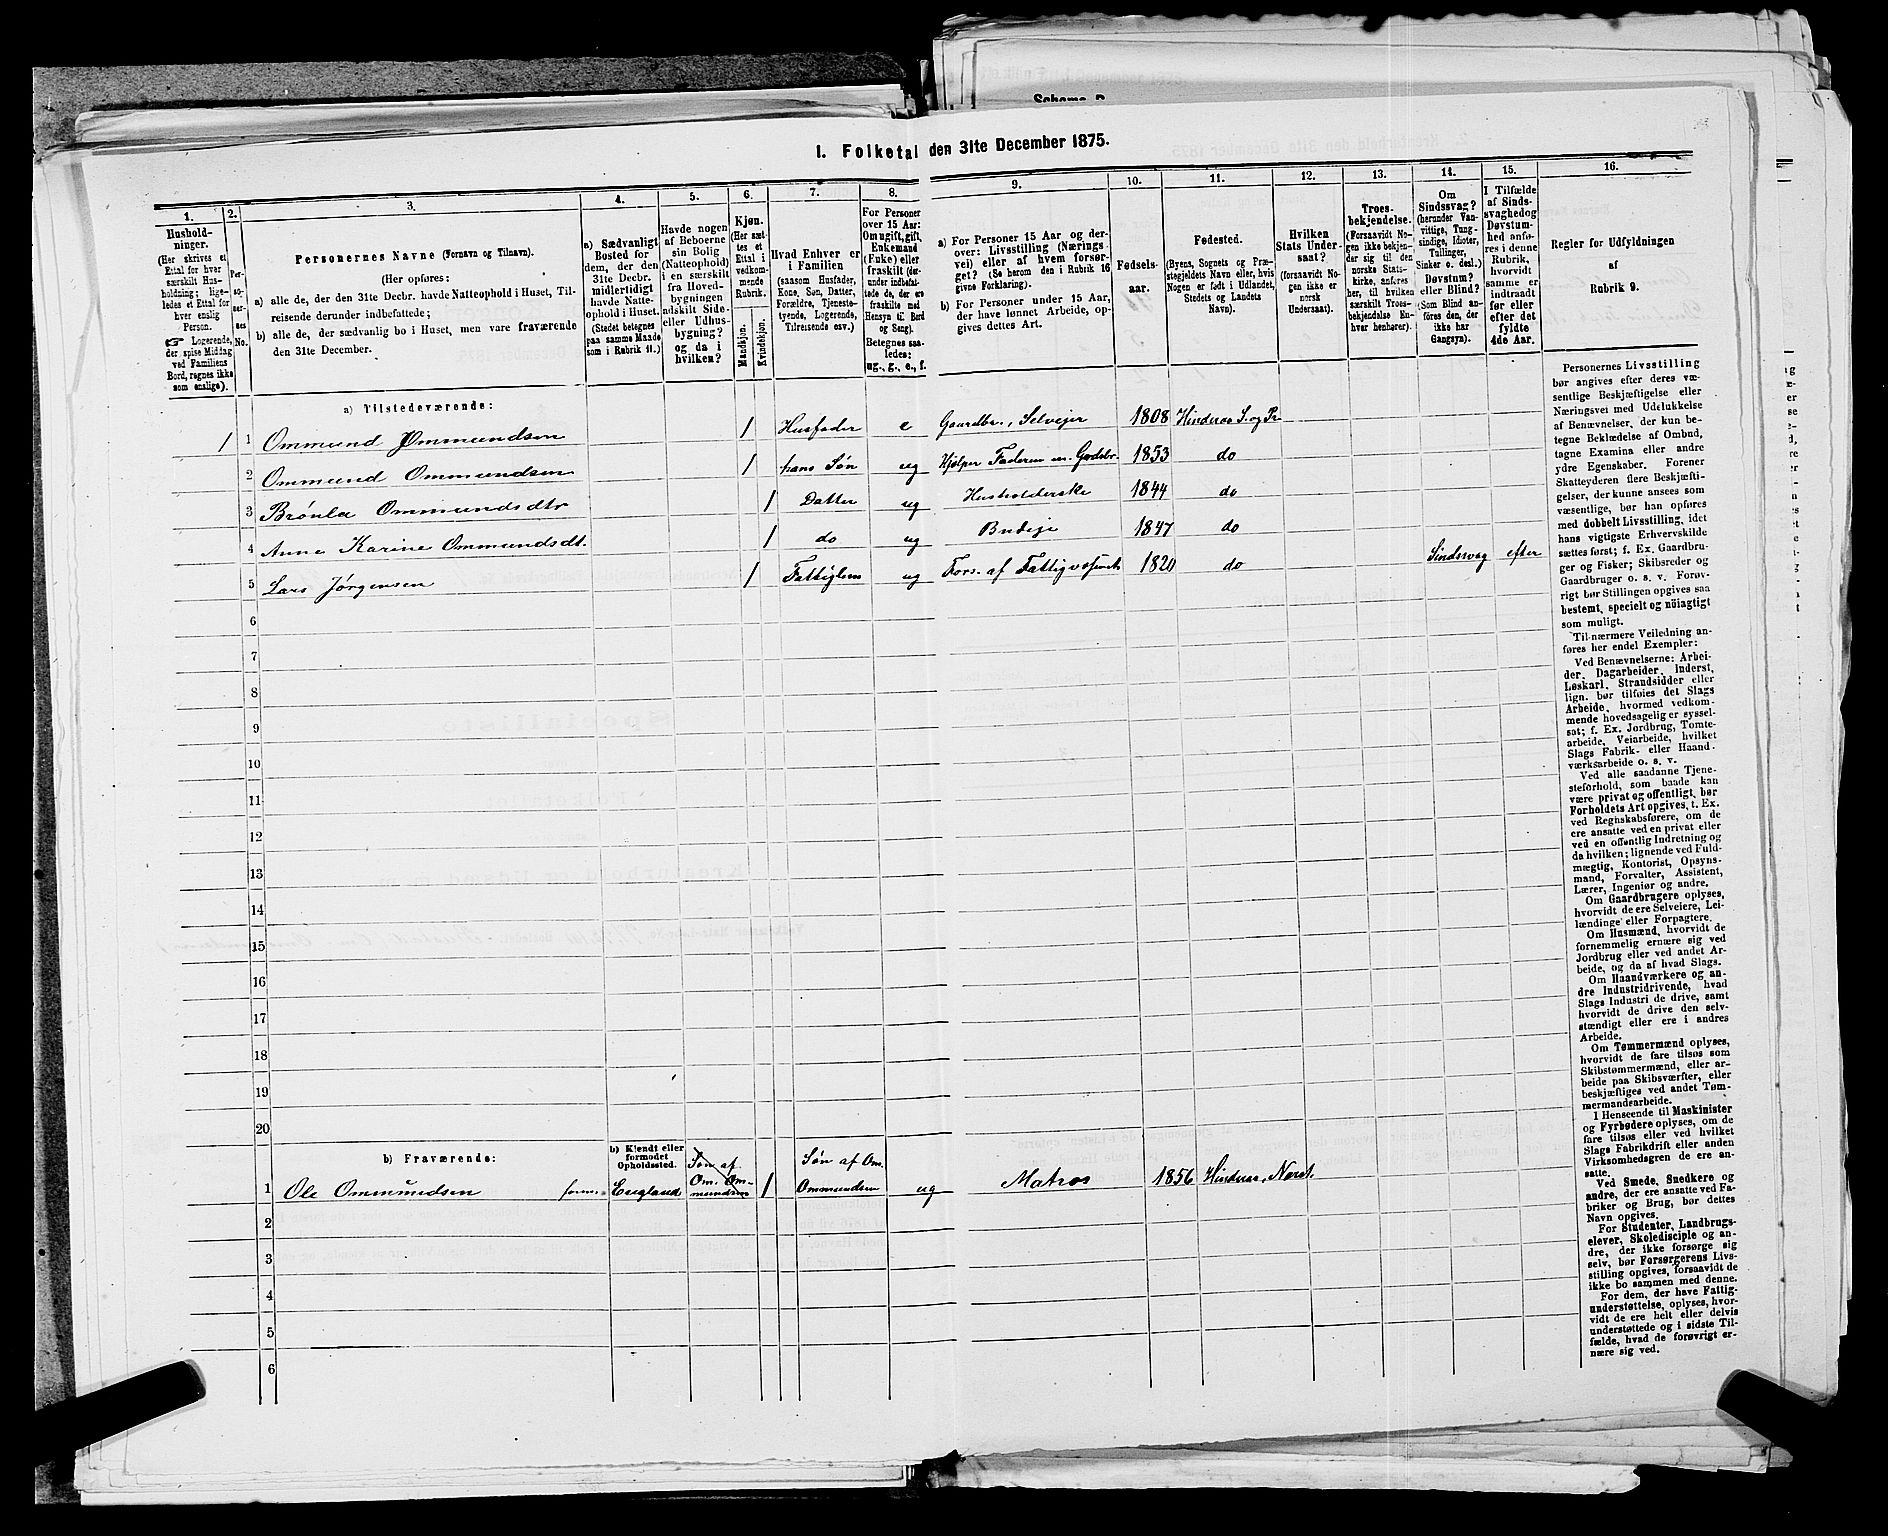 Schema
I. Folketal den 31te December 1875.
1.
Hushold-
ninger.
(Her skrives et
Ettal for hver
særskilt Hus-
holdning; lige-
ledes et Ettal for
hver enslig
Person.
Logerende,
der spise Middag
ved Familiens
Bord, regnes ikke
som enslige).
2.
Per-
so-
ner-
nes
No.
3.
Personernes Navne (Fornavn og Tilnavn).
(Her opføres:
a) alle de, der den 31te Decbr. havde Natteophold i Huset, Til-
reisende derunder indbefattede;
b) alle de, der sædvanlig bo i Huset, men vare fraværende
den 31te December.
4.
a) Sædvanligt
Bosted for
dem, der den
31te Decbr.
midlertidigt
havde Natte-
ophold i Huset.
(Stedet betegnes
paa samme Maade
som i Rubrik 11.)
5.
Havde nogen
af Beboerne
sin Bolig
(Natteophold)
i en særskilt
fra Hoved-
bygningen
adskilt Side-
eller Udhus-
bygning?
og da i
hvilken?
6.
Kjøn.
(Her sæt-
tes et
Ettal i
vedkom-
mende
Rubrik.
Mandkjøn.
Kvindekjøn.
7.
Hvad Enhver er
i Familien
(saasom Husfader,
Kone, Søn, Datter,
Forældre, Tjeneste-
tyende, Logerende,
Tilreisende osv.)
8.
For Personer
over 15 Aar:
Om ugift, gift,
Enkemand
(Enke) eller
fraskilt (der-
under indbefat-
tede de, der ere
fraskilte med
Hensyn til Bord
og Seng).
Betegnes saa-
ledes:
ug., g., e., f.
9.
a) For Personer 15 Aar og der-
over: Livsstilling (Nærings-
vei) eller af hvem forsør-
get? (Se herom den i Rubrik 16
givne Forklaring).
b) For Personer under 15 Aar,
der have lønnet Arbeide, op-
gives dettes Art.
10.
Fødsels-
aar.
11.
Fødested.
(Byens, Sognets og Præ-
stegjeldets Navn eller, hvis
Nogen er født i Udlandet,
Stedets og Landets
Navn).
12.
Hvilken
Stats Under-
saat?
(forsaavidt No-
gen ikke er
norsk
Undersaat).
13.
Troes-
bekjendelse.
(Forsaavidt No-
gen ikke bekjen-
der sig til den
norske Stats-
kirke, anføres
her, til hvilken
særskilt Troes-
bekjendelse En-
hver henhører).
14.
Om
Sindssvag?
(herunder Van-
vittige, Tung-
sindige, Idioter,
Tullinger,
Sinker o. desl.)
Døvstum?
eller Blind?
(Som Blind an-
føres den, der
ikke har
Gangsyn).
15.
I Tilfælde
af Sinds-
svaghed og
Døvstum-
hed anfø-
res i denne
Rubrik,
hvorvidt
samme er
indtraadt
før eller
efter det
fyldte
4de Aar.
16.
Regler for Udfyldningen
af
Rubrik 9.
a) Tilstedeværende:
1 1 Ommund Ommundsen 1 Husfader e Gaardbr., Selveier 1808 Hindnæs S. og Pr
2 Ommund Ommundsen 1 hans Søn ug Hjælper Faderen m. Gaardsbr. 1853 do
3 Brønla Ommundsdtr 1 Datter ug Husholderske 1844 do
4 Anne Karine Ommundsdt. 1 do ug Budeje 1847 do
5 Lars Jørgensen 1 Fattiglem ug Fors. af Fattigvæsenet 1820 do Sindssvag efter
6
7
8
9
10
11
12
13
14
15
16
17
18
19
20
b) Fraværende:
b) Kjendt eller
formodet
Opholdssted.
1 Ole Ommundsen form. England Søn af Om. Ommundsen 1 Søn af Om. Ommundsen ug Matros 1856 Hindnæs, Norst.
2
3
4
5
6
Personernes Livsstilling
bør angives efter deres væ-
sentlige Beskjæftigelse eller
Næringsvei med Udelukkelse
af Benævnelser, der kun be-
tegne Beklædelse af Ombud,
tagne Examina eller andre
ydre Egenskaber. Forener
Skatteyderen flere Beskjæfti-
gelser, der kunne ansees som
væsentlige, bør han opføres
med dobbelt Livsstilling, idet
hans vigtigste Erhvervskilde
sættes først; f. Ex. Gaardbru-
ger og Fisker; Skibsreder og
Gaardbruger o. s. v. Forøv-
rigt bør Stillingen opgives saa
bestemt, specielt og nøiagtigt
som muligt.
Til nærmere Veiledning an-
føres her endel Exempler:
Ved Benævnelserne: Arbei-
der, Dagarbeider, Inderst,
Løskarl, Strandsidder eller
lign. bør tilføies det Slags
Arbeide, hvormed vedkom-
mende hovedsagelig er syssel-
sat; f. Ex. Jordbrug, Tømte-
arbeide, Veiarbeide, hvilket
Slags Fabrik- eller Haand-
værksarbeide o. s. v.
Ved alle saadanne Tjene-
steforhold, som baade kan
være privat og offentligt, bør
Forholdets Art opgives, t. Ex.
ved Regnskabsførere, om de
ere ansatte ved en privat eller
ved en offentlig Indretning og
da hvilken; lignende ved Fuld-
mægtig, Kontorist, Opsyns-
mand, Forvalter, Assistent,
Lærer, Ingeniør og andre.
Om Gaardbrugere oplyses,
hvorvidt de ere Selveiere, Lei-
lændinge eller Forpagtere.
Om Husmænd, hvorvidt de
fornemmelig ernære sig ved
Jordbrug eller ved andet Ar-
beide, og da af hvad Slags.
Om Haandværkere og an-
dre Industridrivende, hvad
Slags Industri de drive, samt
hvorvidt de drive den selv-
stændigt eller ere i andres
Arbeide.
Om Tømmermænd oplyses,
hvorvidt de fare tilsøs som
Skibstømmermænd, eller ar-
beide paa Skibsværfter, eller
beskjæftiges ved andet Tøm-
mermandsarbeide.
I Henseende til Maskinister
og Fyrbødere oplyses, om de
fare tilsøs eller ved hvilket
Slags Fabrikdrift eller anden
Virksomhedsgren de ere an-
satte.
Ved Smede, Snedkere og
andre, der ere ansatte ved Fa-
briker og Brug, bør dettes
Navn opgives.
For Studenter, Landbrugs-
elever, Skoledisciple og an-
dre, der ikke forsørge sig
selv, bør Forsørgerens Livs-
stilling opgives, forsaavidt de
ikke bo sammen med denne.
For dem, der have Fattig-
understøttelse, oplyses, hvor-
vidt de ere helt eller delvis
understøttede og i sidste Til-
fælde, hvad de forøvrigt er-
nære sig ved.